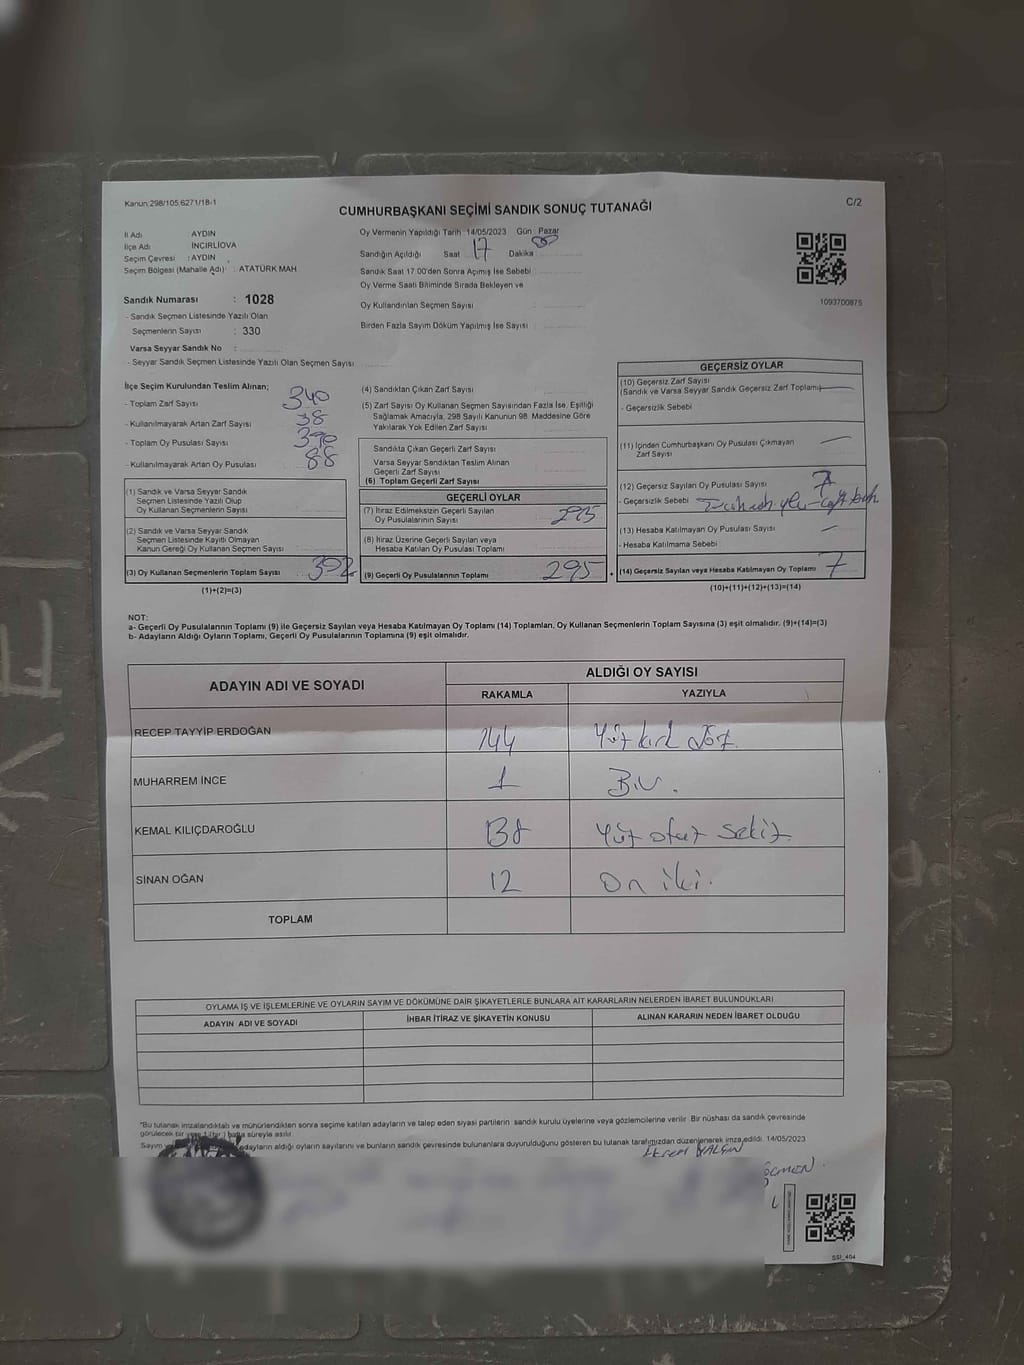 Kanun:298/105,6271/18-1
CUMHURBAŞKANI SEÇİMİ SANDIK SONUÇ TUTANAĞI
C/2
İl Adı : AYDIN
İlçe Adı : İNCİRLİOVA
Seçim Çevresi : AYDIN
Seçim Bölgesi (Mahalle Adı) : ATATÜRK MAH
Sandık Numarası : 1028
- Sandık Seçmen Listesinde Yazılı Olan
Seçmenlerin Sayısı : 330
Varsa Seyyar Sandık No :
- Seyyar Sandık Seçmen Listesinde Yazılı Olan Seçmen Sayısı
Oy Vermenin Yapıldığı Tarih :14/05/2023 Gün : Pazar
Sandığın Açıldığı Saat 17 Dakika 00
Sandık Saat 17.00'den Sonra Açımış İse Sebebi
Oy Verme Saati Bitiminde Sırada Bekleyen ve
Oy Kullandırılan Seçmen Sayısı :
Birden Fazla Sayım Döküm Yapılmış İse Sayısı :
1093700875
İlçe Seçim Kurulundan Teslim Alınan;
- Toplam Zarf Sayısı 340
- Kullanılmayarak Artan Zarf Sayısı 38
- Toplam Oy Pusulası Sayısı 390
- Kullanılmayarak Artan Oy Pusulası 88
(1) Sandık ve Varsa Seyyar Sandık
Seçmen Listesinde Yazılı Olup
Oy Kullanan Seçmenlerin Sayısı
(2) Sandık ve Varsa Seyyar Sandık
Seçmen Listesinde Kayıtlı Olmayan
Kanun Gereği Oy Kullanan Seçmen Sayısı
(3) Oy Kullanan Seçmenlerin Toplam Sayısı 302
(1)+(2)=(3)
(4) Sandıktan Çıkan Zarf Sayısı
(5) Zarf Sayısı Oy Kullanan Seçmen Sayısından Fazla İse, Eşitliği
Sağlamak Amacıyla, 298 Sayılı Kanunun 98. Maddesine Göre
Yakılarak Yok Edilen Zarf Sayısı
Sandıkta Çıkan Geçerli Zarf Sayısı
Varsa Seyyar Sandıktan Teslim Alınan
Geçerli Zarf Sayısı
(6) Toplam Geçerli Zarf Sayısı
GEÇERLİ OYLAR
(7) İtiraz Edilmeksizin Geçerli Sayılan
Oy Pusulalarının Sayısı 295
(8) İtiraz Üzerine Geçerli Sayılan veya
Hesaba Katılan Oy Pusulası Toplamı
(9) Geçerli Oy Pusulalarının Toplamı 295
GEÇERSİZ OYLAR
(10) Geçersiz Zarf Sayısı
(Sandık ve Varsa Seyyar Sandık Geçersiz Zarf Toplamı)
- Geçersizlik Sebebi
(11) İçinden Cumhurbaşkanı Oy Pusulası Çıkmayan
Zarf Sayısı
(12) Geçersiz Sayılan Oy Pusulası Sayısı 7
- Geçersizlik Sebebi
(13) Hesaba Katılmayan Oy Pusulası Sayısı
- Hesaba Katılmama Sebebi
(14) Geçersiz Sayılan veya Hesaba Katılmayan Oy Toplamı 7
(10)+(11)+(12)+(13)=(14)
NOT:
a- Geçerli Oy Pusulalarının Toplamı (9) ile Geçersiz Sayılan veya Hesaba Katılmayan Oy Toplamı (14) Toplamları, Oy Kullanan Seçmenlerin Toplam Sayısına (3) eşit olmalıdır. (9)+(14)=(3)
b- Adayların Aldığı Oyların Toplamı, Geçerli Oy Pusulalarının Toplamına (9) eşit olmalıdır.
ADAYIN ADI VE SOYADI
ALDIĞI OY SAYISI
RAKAMLA YAZIYLA
RECEP TAYYİP ERDOĞAN 144 Yüz kırk dört
MUHARREM İNCE 1 Bir.
KEMAL KILIÇDAROĞLU 138 Yüz otuz sekiz
SİNAN OĞAN 12 On iki.
TOPLAM
OYLAMA İŞ VE İŞLEMLERİNE VE OYLARIN SAYIM VE DÖKÜMÜNE DAİR ŞİKAYETLERLE BUNLARA AİT KARARLARIN NELERDEN İBARET BULUNDUKLARI
ADAYIN ADI VE SOYADI İHBAR İTİRAZ VE ŞİKAYETİN KONUSU ALINAN KARARIN NEDEN İBARET OLDUĞU
*Bu tutanak imzalandıktan ve mühürlendikten sonra seçime katılan adayların ve talep eden siyasi partilerin sandık kurulu üyelerine veya gözlemcilerine verilir. Bir nüshası da sandık çevresinde
görülecek bir yere 1 (bir) hafta süreyle asılır.
Sayım adayların aldığı oyların sayılarını ve bunların sandık çevresinde bulunanlara duyurulduğunu gösteren bu tutanak tarafımızdan düzenlenerek imza edildi. 14/05/2023
SSI_404